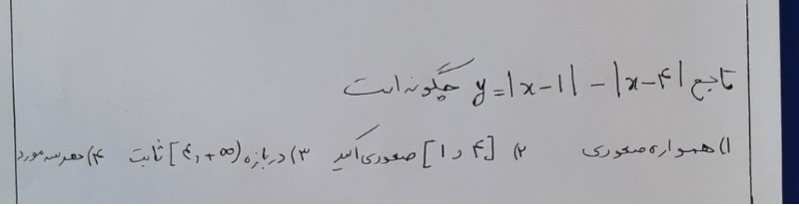 تابع y=|x-1|-|x-۴| چگونه است
۱) همواره صعودی ۲) [۱ و ۴] صعودی اکید ۳) در بازه [۴, +∞) ثابت ۴) هر سه مورد